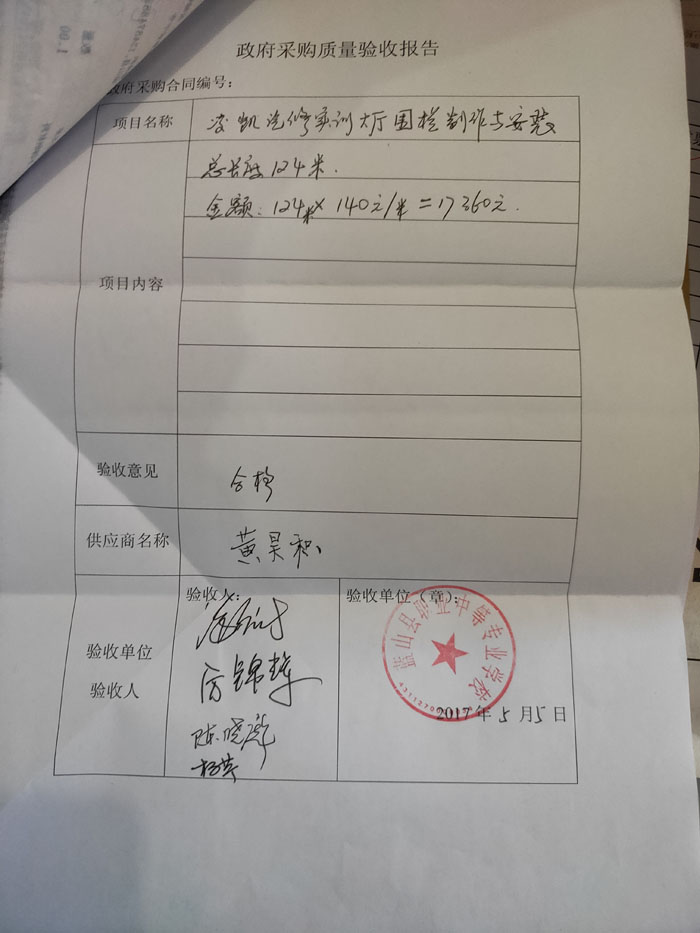 政府采购质量验收报告
政府采购合同编号：
项目名称
凌凯汽修实训大厅围栏制作与安装
项目内容
总长度124米.
金额：124米×140元/米=17360元.
验收意见
合格
供应商名称
黄昊积
验收单位
验收人
验收人：
陈晓辉
验收单位（章）：
蓝山县职业中等专业学校
2017年5月5日